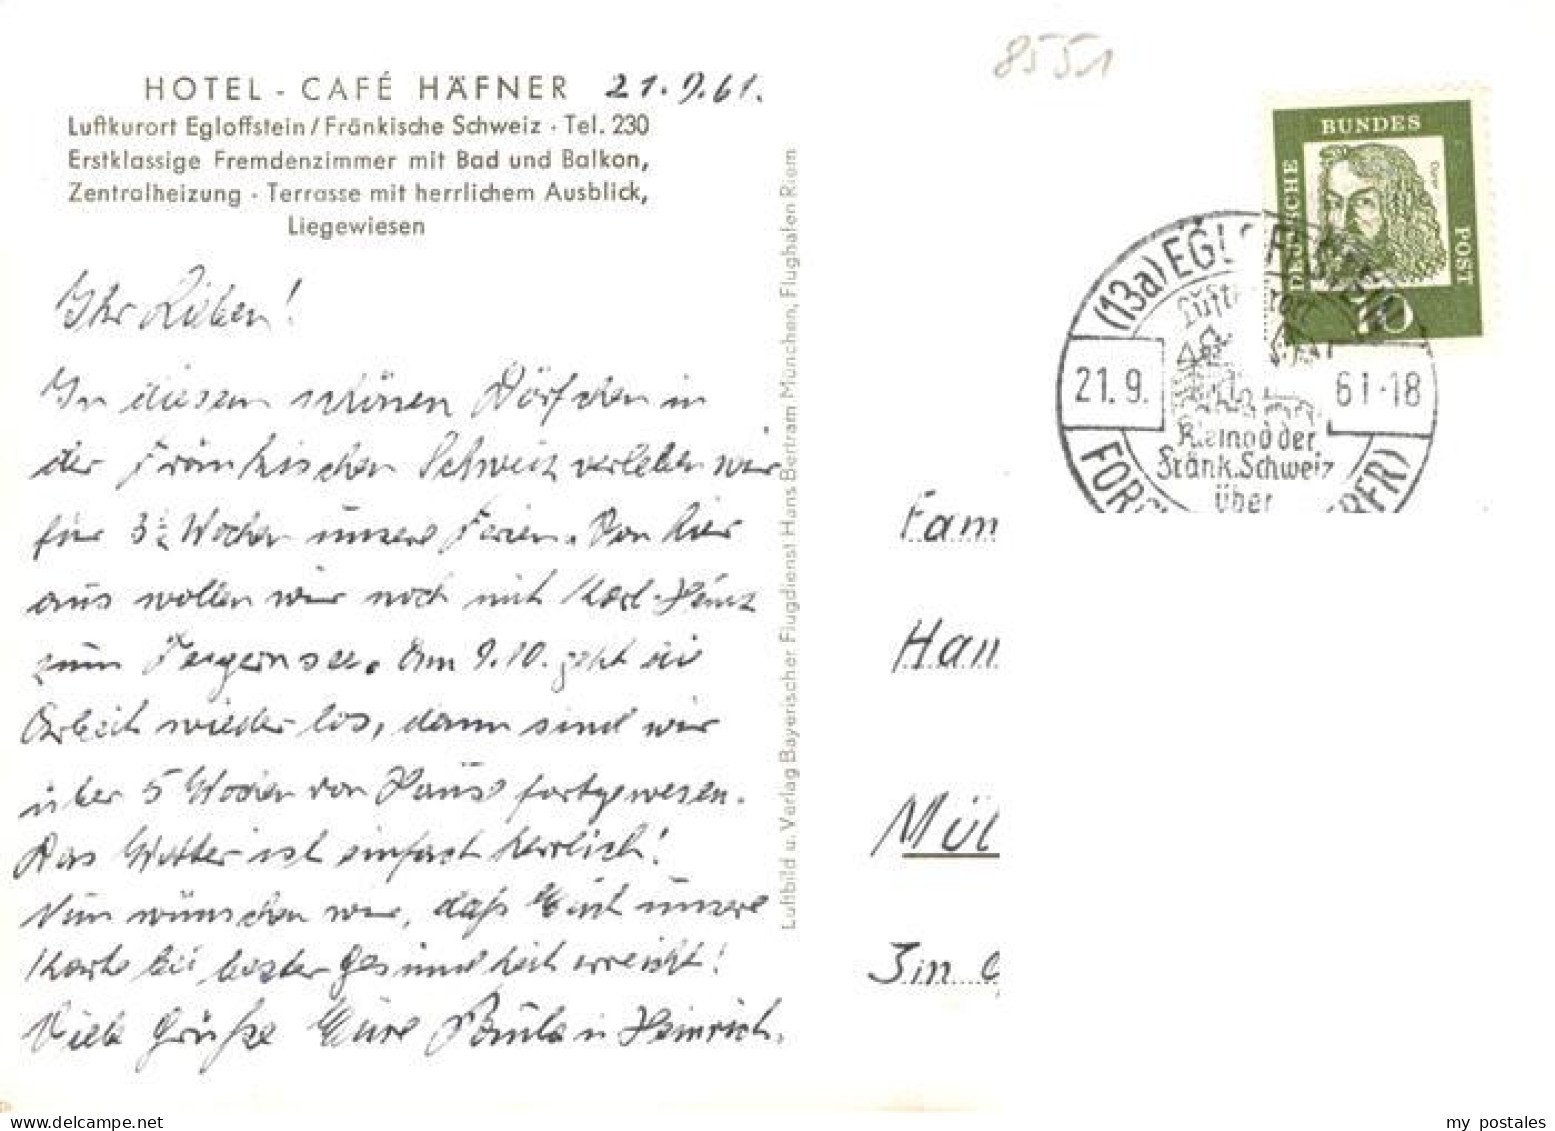 8551
HOTEL - CAFÉ HÄFNER 21.9.61.
Luftkurort Egloffstein/Fränkische Schweiz · Tel. 230
Erstklassige Fremdenzimmer mit Bad und Balkon,
Zentralheizung · Terrasse mit herrlichem Ausblick,
Liegewiesen
Ihr Lieben!
In diesem schönen Dörfchen in
der Fränkischen Schweiz verleben wir
für 3½ Wochen unsere Ferien. Von hier
aus wollen wir noch mit Karl-Heinz
zum Tegernsee. Am 9.10. geht die
Arbeit wieder los, dann sind wir
über 5 Wochen von Haus fortgewesen.
Das Wetter ist einfach herrlich!
Nun wünschen wir, daß Euch unsere
Karte bei bester Gesundheit erreicht!
Viele Grüße Eure Paula u. Heinrich.
Luftbild u. Verlag Bayerischer Flugdienst Hans Bertram München, Flughafen Riem
DEUTSCHE
BUNDES
POST
Dürer
10
(13a) EGLOFFSTEIN
21.9. 61-18
Kleinod der
Fränk. Schweiz
über
FORC
Fam
Han
Mül
Jin G
my postales